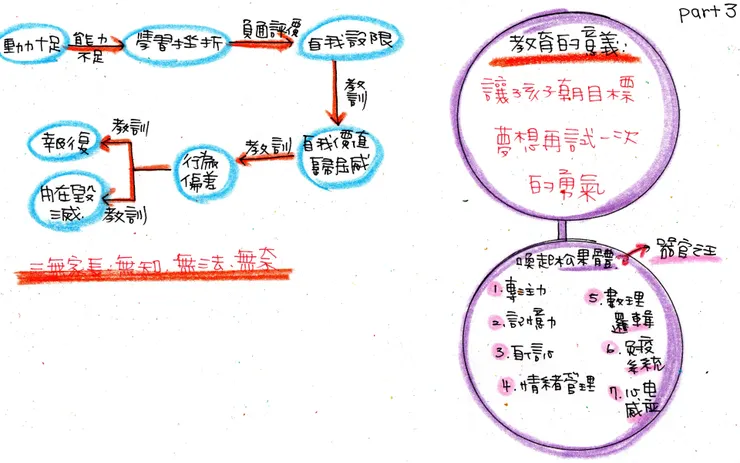 part 3
動力十足
能力
不足
學習挫折
負面評價
自我設限
教
訓
自我價值
歸屬感
教訓
行為
偏差
教訓
報復
教訓
內在毀
滅
三無家長:無知、無法、無奈
教育的意義:
讓孩子朝目標
夢想再試一次
的勇氣
喚起松果體
器官之王
1.專注力
2.記憶力
3.自信心
4.情緒管理
5.數理
邏輯
6.免疫
系統
7.心电
感应